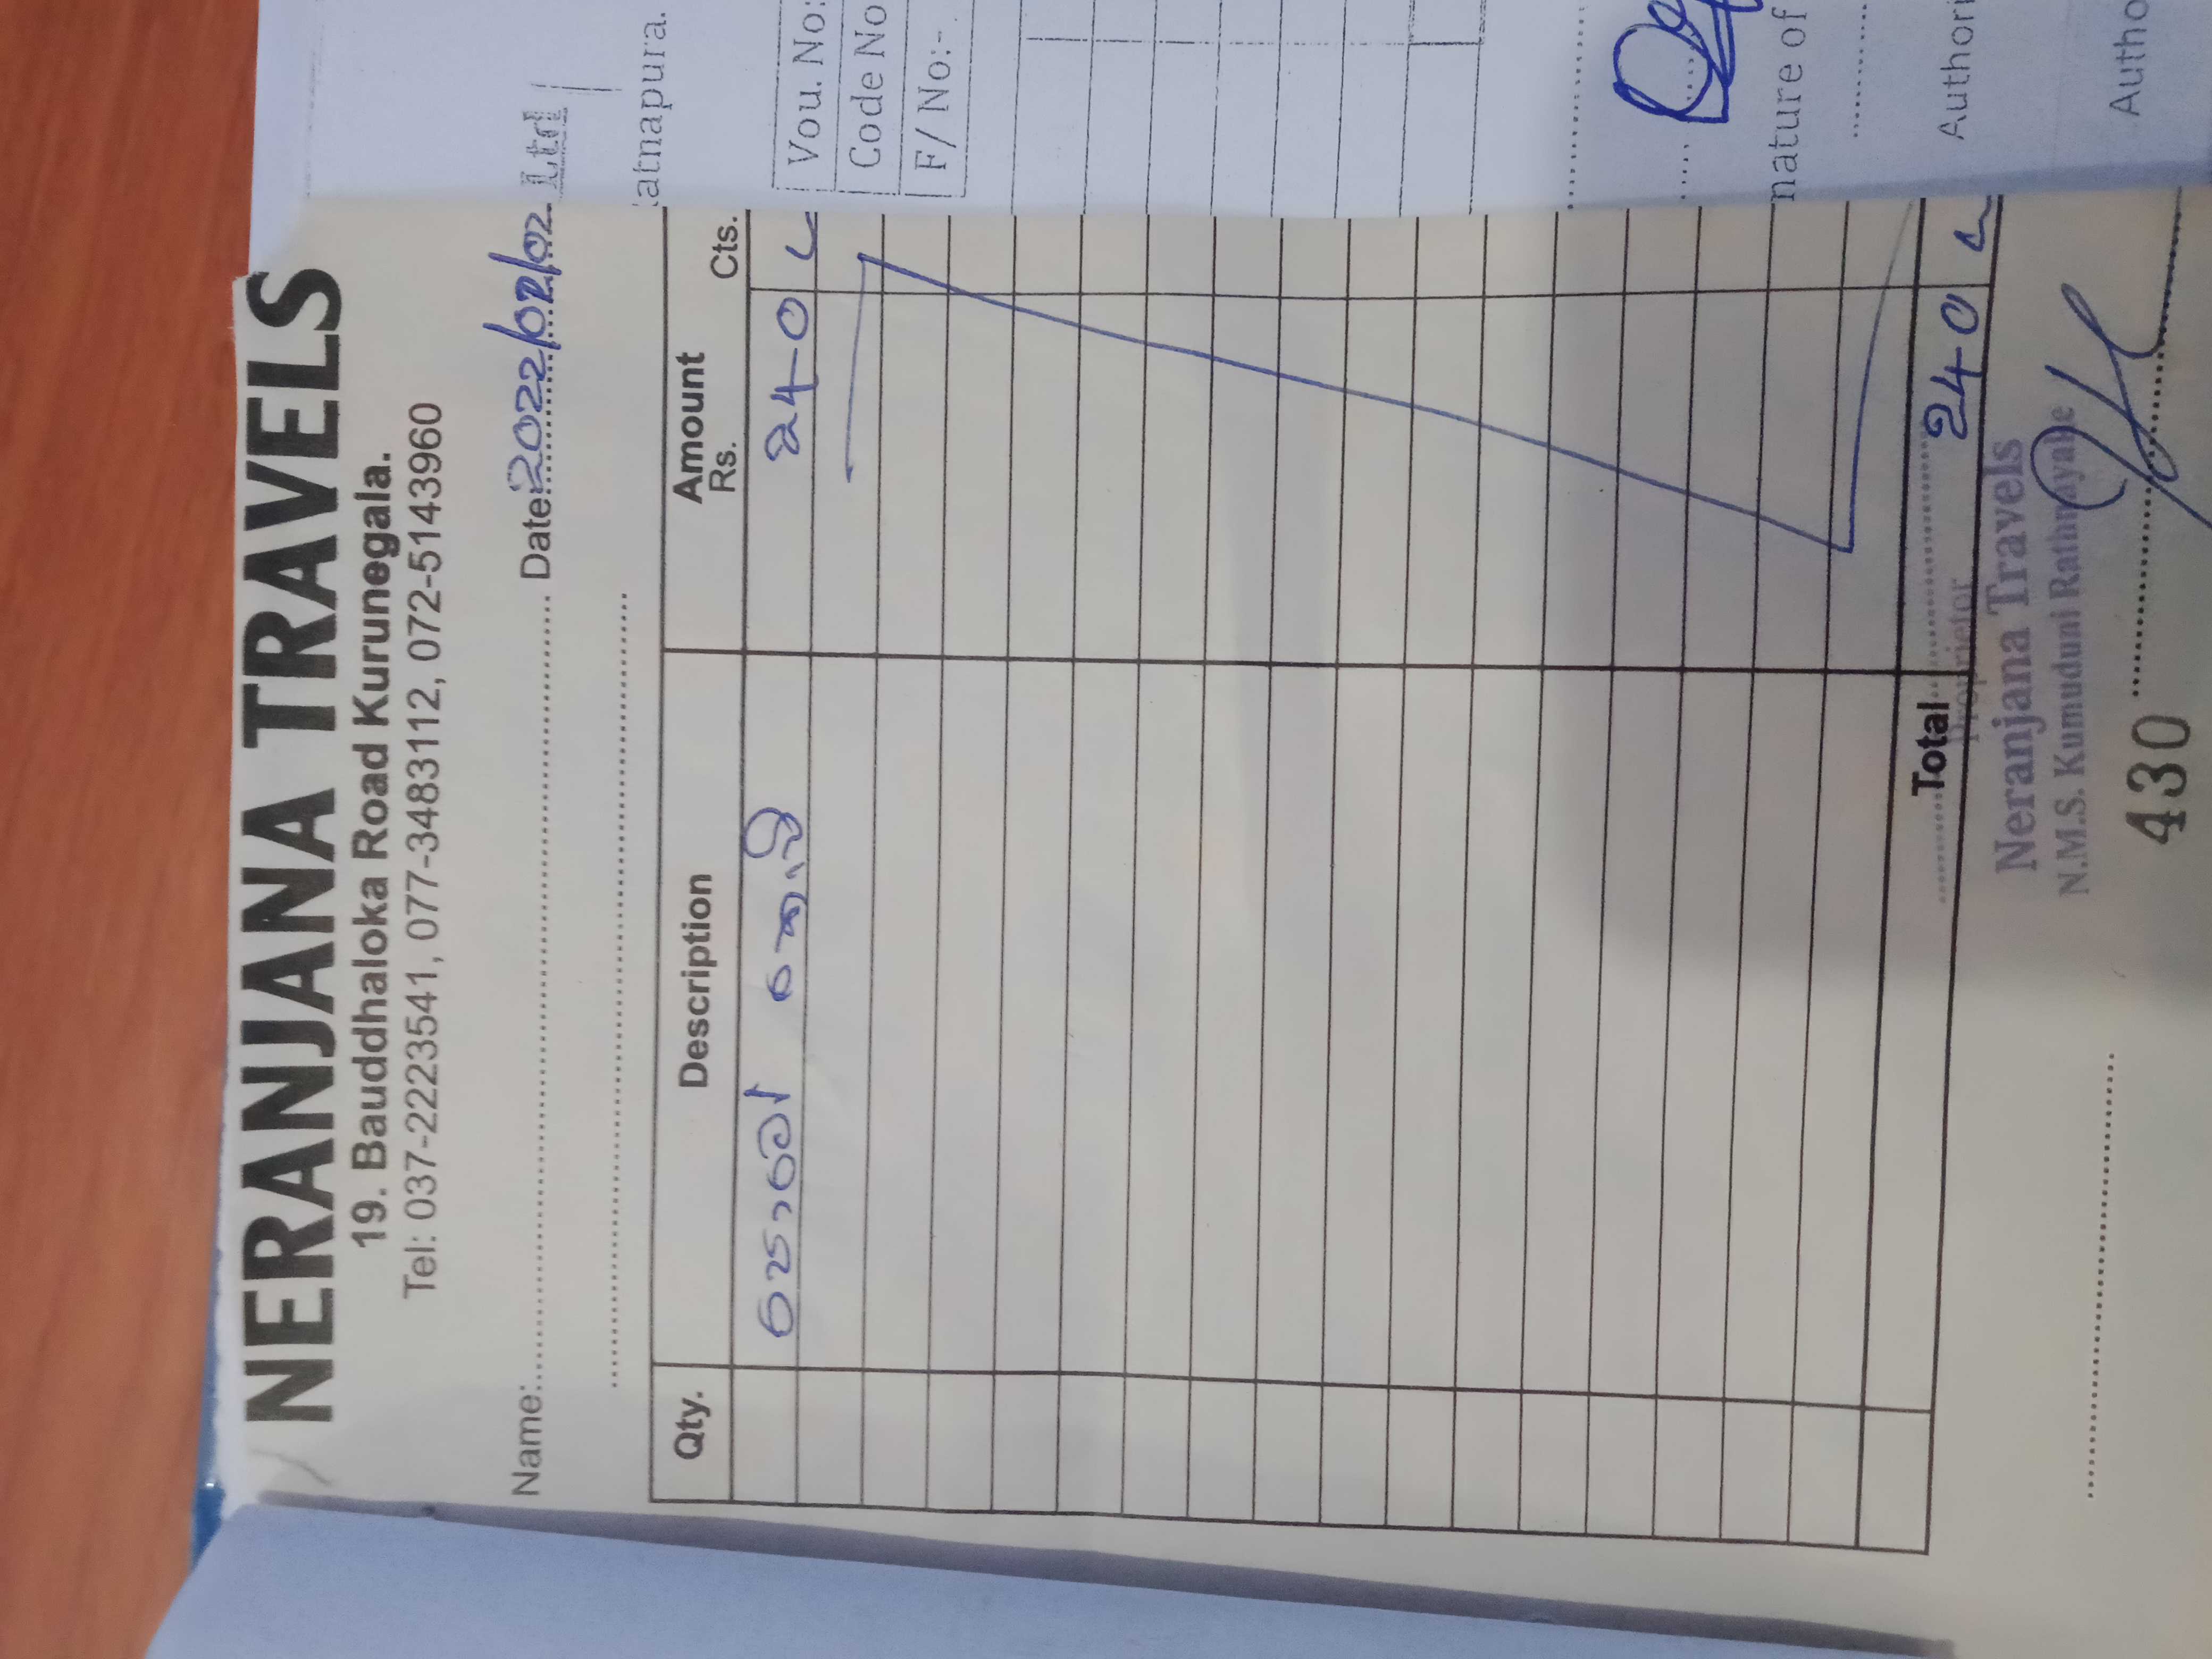 NERANJANA TRAVELS
19. Bauddhaloka Road Kurunegala.
Tel: 037-2223541, 077-3483112, 072-5143960
Name:.......... Date:2022/02/02
Qty. Description Amount
Rs. Cts.
240
Total 240
Proprietor
Neranjana Travels
N.M.S. Kumuduni Rathnayake
430
Ltd
atnapura.
Vou. No:
Code No
F/ No:-
nature of
Authori
Autho